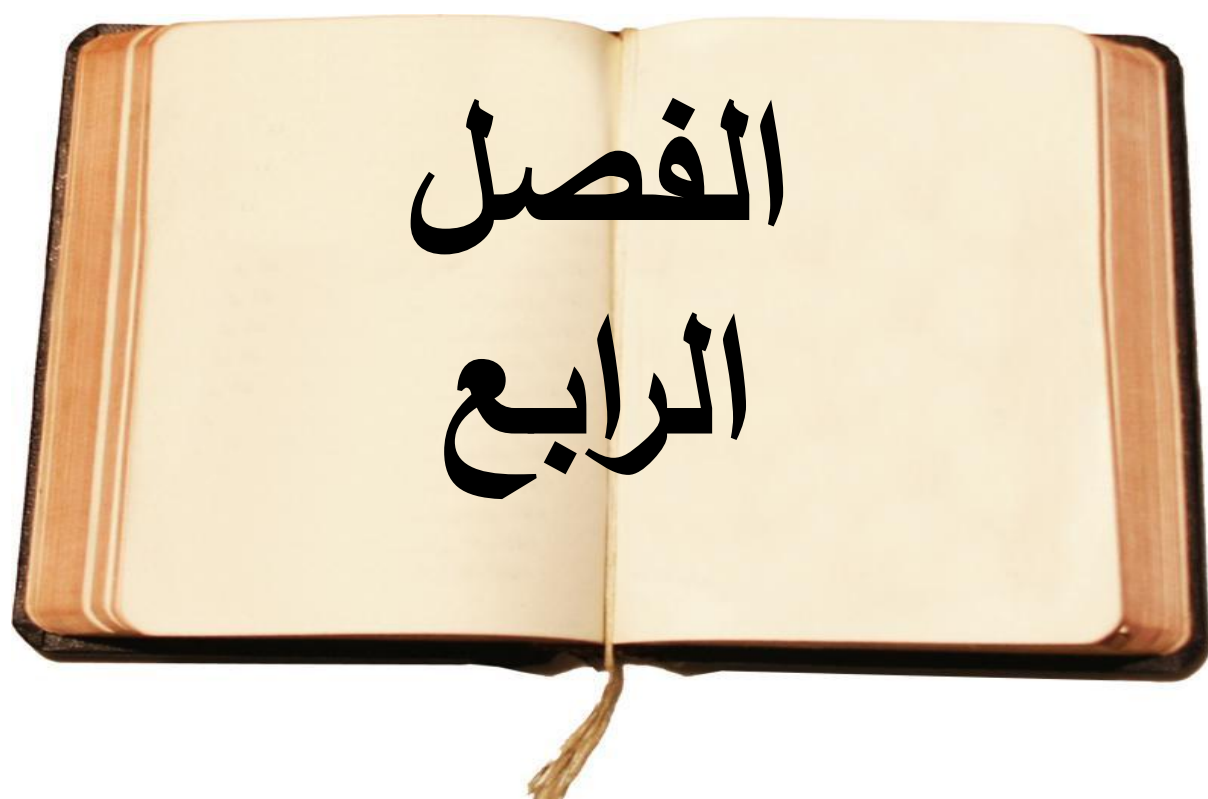 الفصل
الرابع